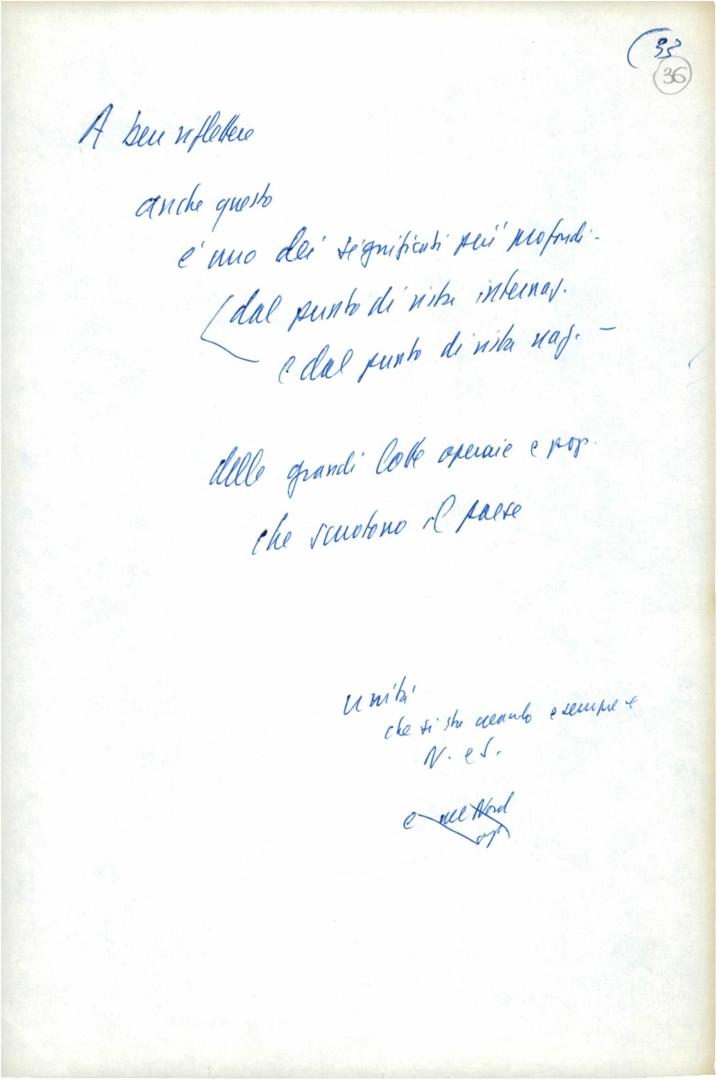 (33
36
A ben riflettere
anche questo
è uno dei significati più profondi -
dal punto di vista internaz.
e dal punto di vista naz. -
delle grandi lotte operaie e pop.
che scuotono il paese
unità
che si sta creando
N. e S.
e nel Nord